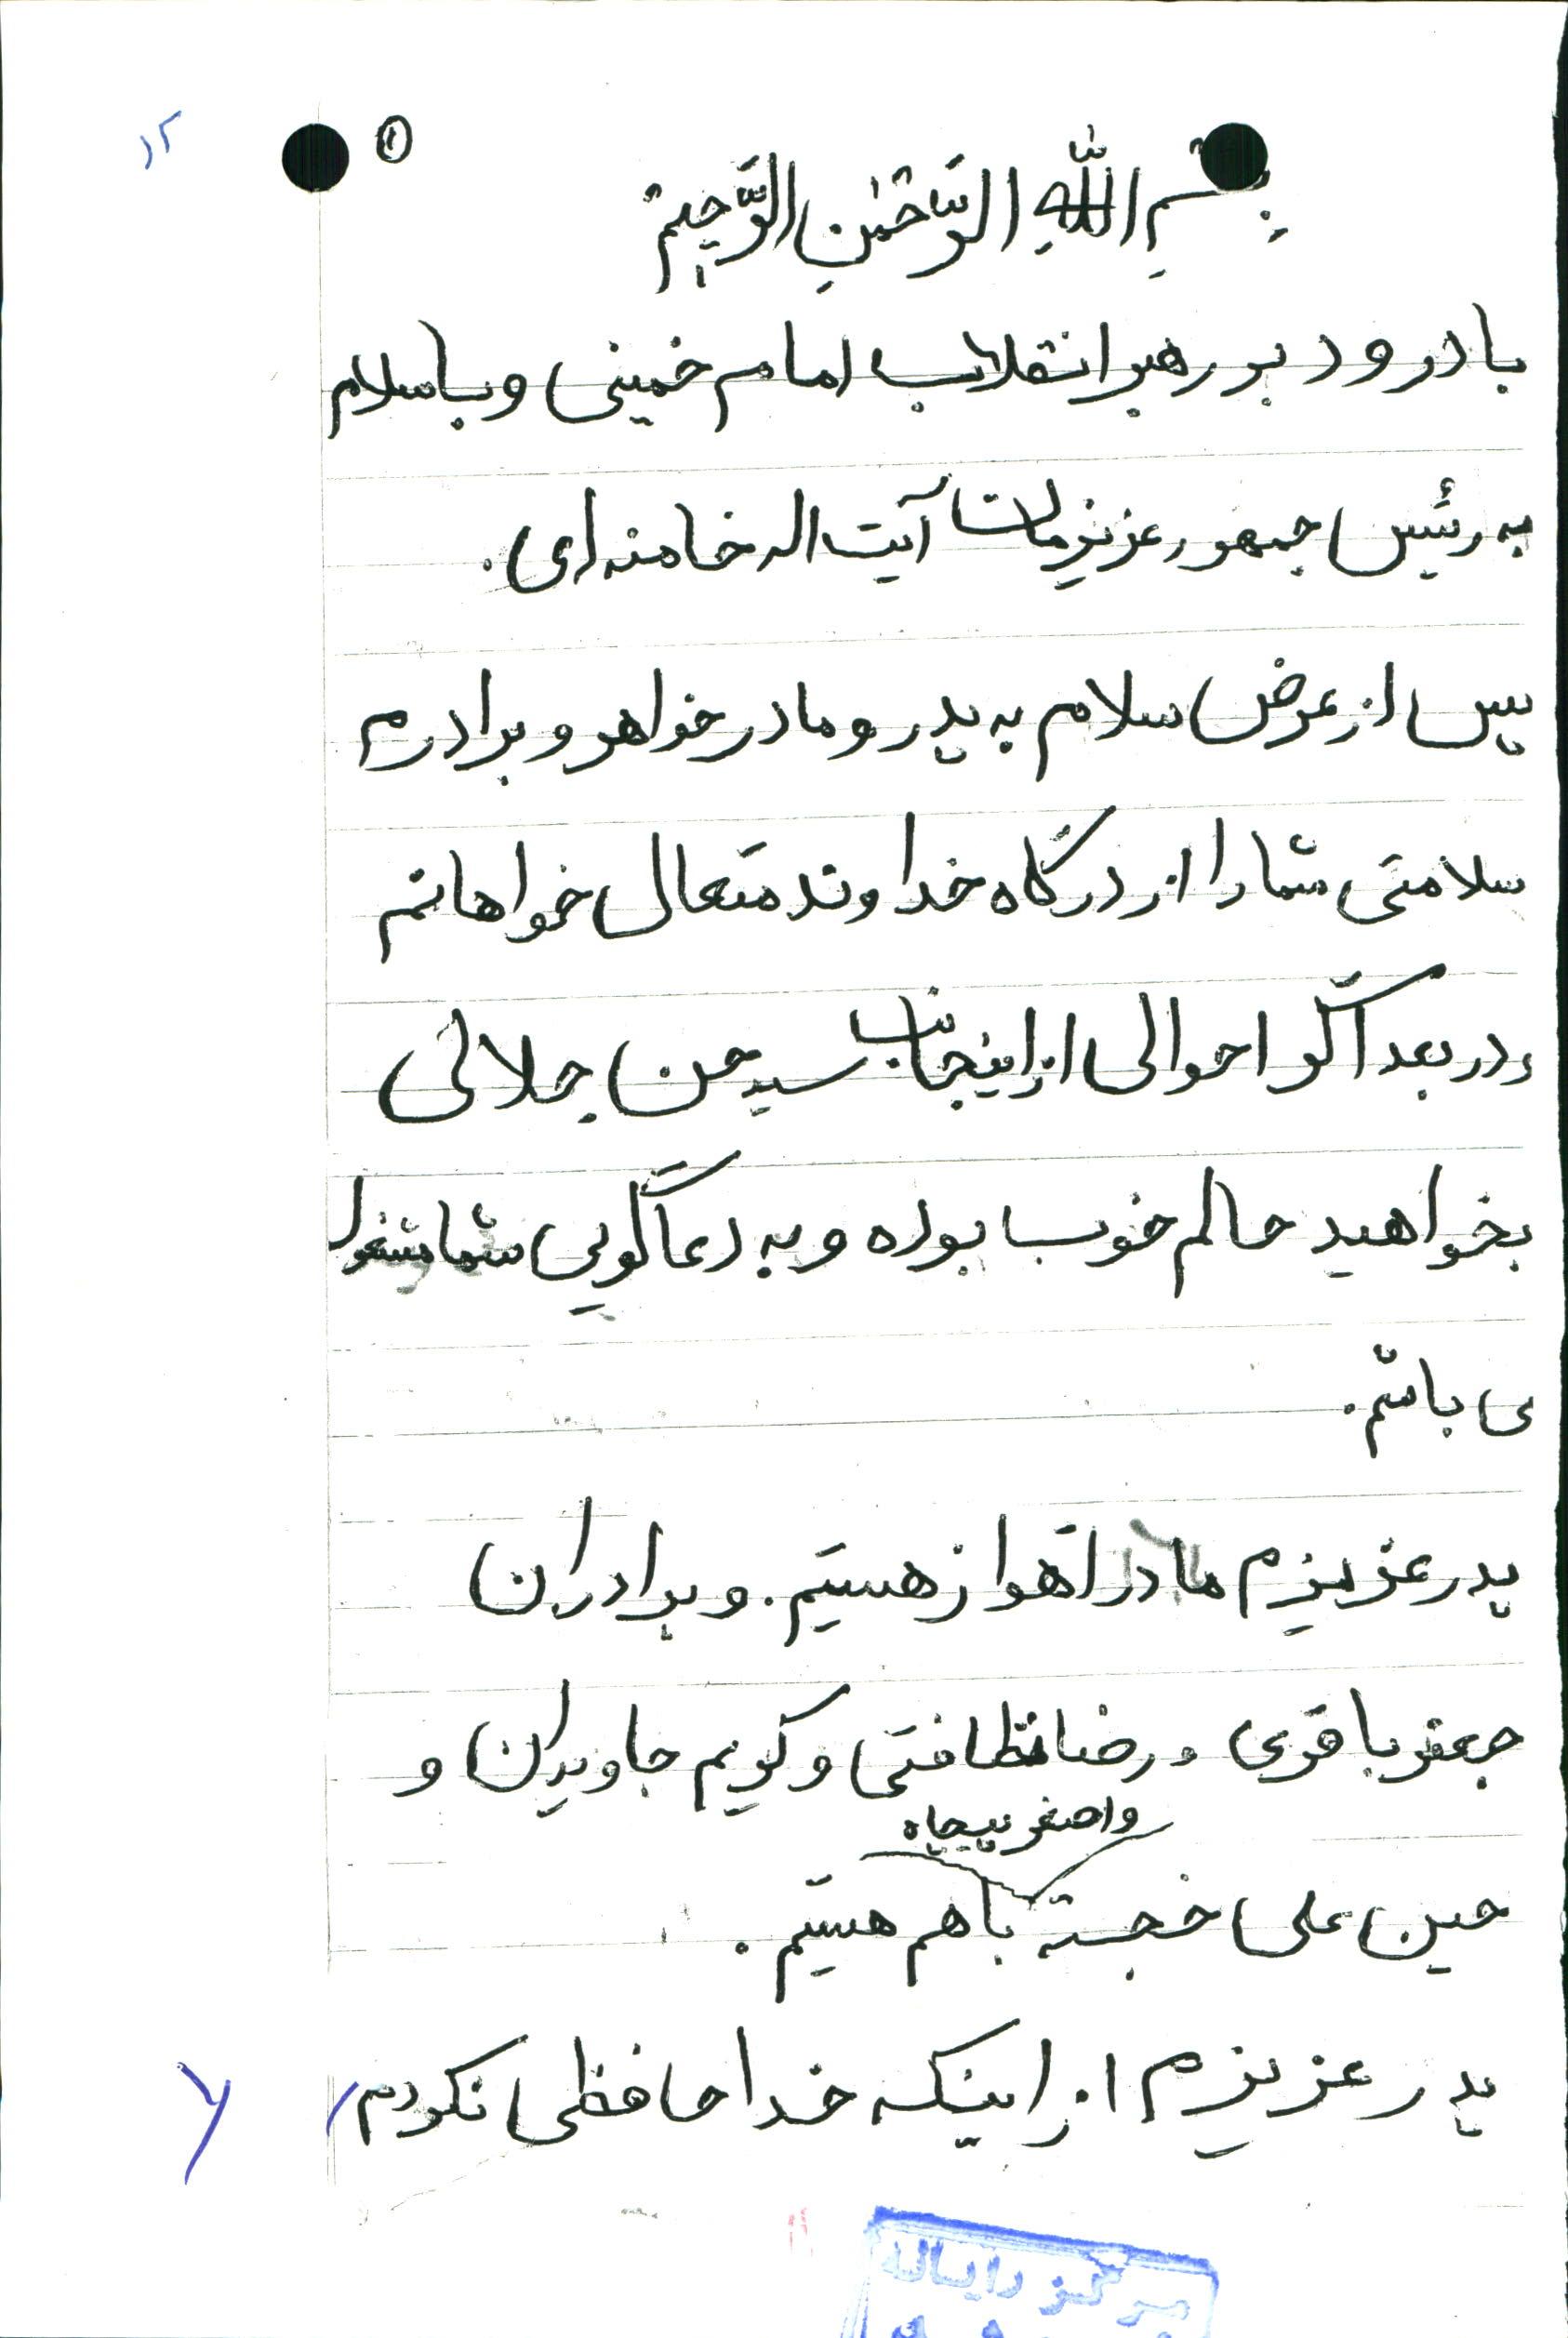 ۱۲
۱
بِسْمِ اللّٰهِ الرَّحْمٰنِ الرَّحِیمْ
با درود بر رهبر انقلاب امام خمینی و با سلام
به رئیس جمهور عزیزمان آیت اله خامنه ای.
پس از عرض سلام به پدر و مادر خواهر و برادرم
سلامتی شما را از درگاه خداوند متعال خواهانم
و در بعد اگر احوالی از اینجانب سید حسن جلالی
بخواهید حالم خوب بوده و به دعاگویی شما مشغول
می باشم.
پدر عزیزم ما در اهواز هستیم. و برادران
جعفر باقری و رضا نظافتی و کریم جاویدان و
و اصغر پیجاه
حسین علی خجسته با هم هستیم.
پدر عزیزم از اینکه خداحافظی نکردم
۶
مرکز رایانه